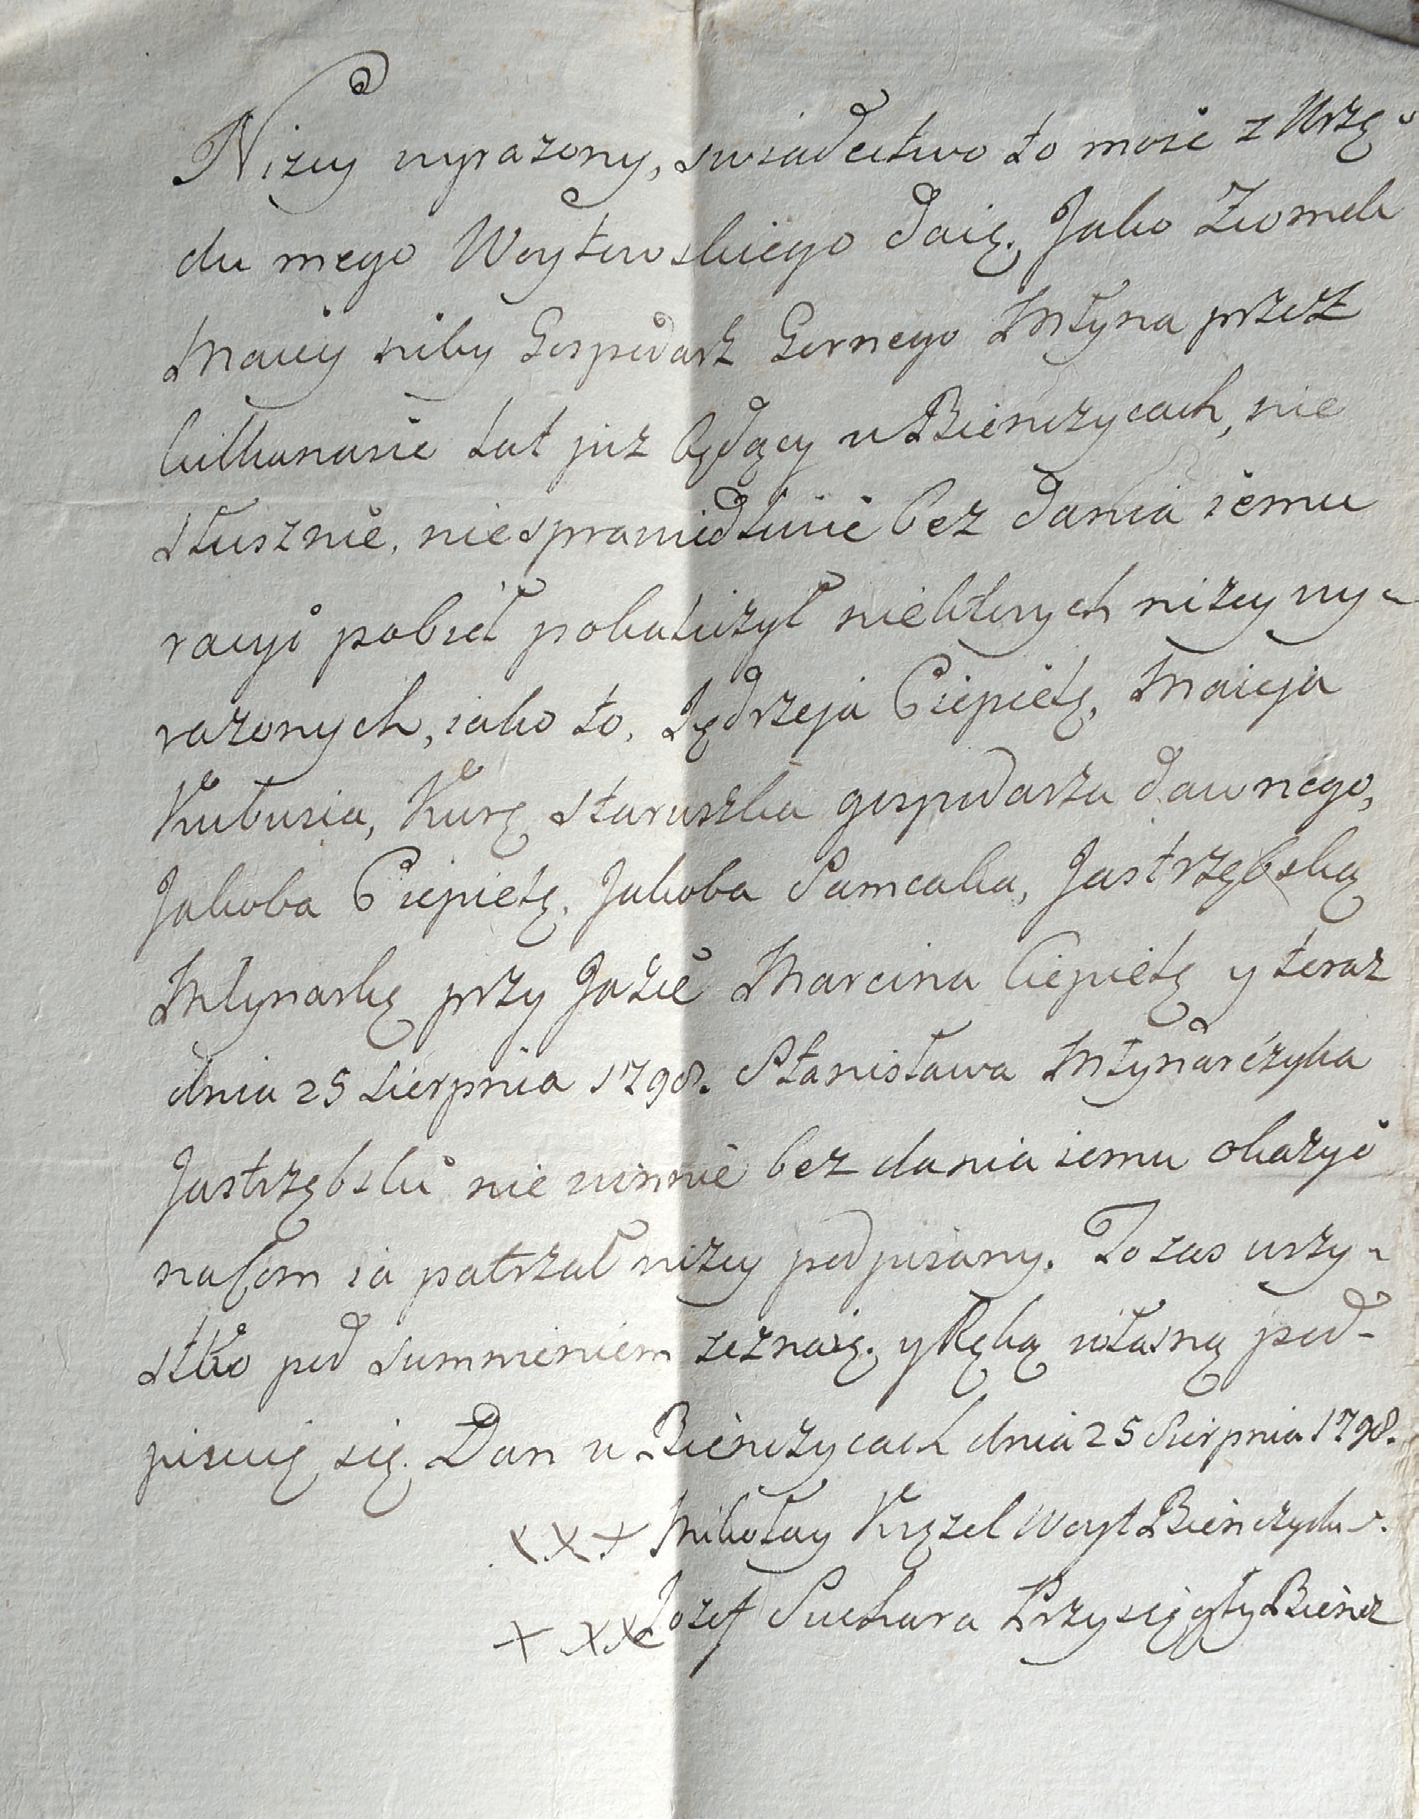 Nizey wyrazony, swiadectwo to moie z Urzę
du mego Woytowskiego daię. Jako Ziomek
Maciey niby Gospodarz Gornego Młyna przez
kilkanascie Lat juz będący w Bienczycach, nie
słusznie, niesprawiedliwie bez dania iemu
racyi pobieł pokaliczył niektorych nizey wy-
razonych, iako to, Jędrzeja Ciepietę, Macieja
Kubusia, Kurę staruszka gospodarza dawnego,
Jakoba Ciepietę, Jakoba Samcaka, Jastrzębską
Młynarkę przy Jazie Marcina Ciepietę y teraz
dnia 25 Sierpnia 1798. Stanisława Młynarczyka
Jastrzębski niewinnie bez dania iemu okazyi
na com ia patrzał nizey podpisany. To zas wszy-
stko pod summieniem zeznaię. y Ręką własną pod-
pisuię się. Dan w Bienczycach dnia 25 Sierpnia 1798.
xxx Mikołay Krązel Woyt Bienczycki
xxx Jozef Suchara Przysięgły Biencz